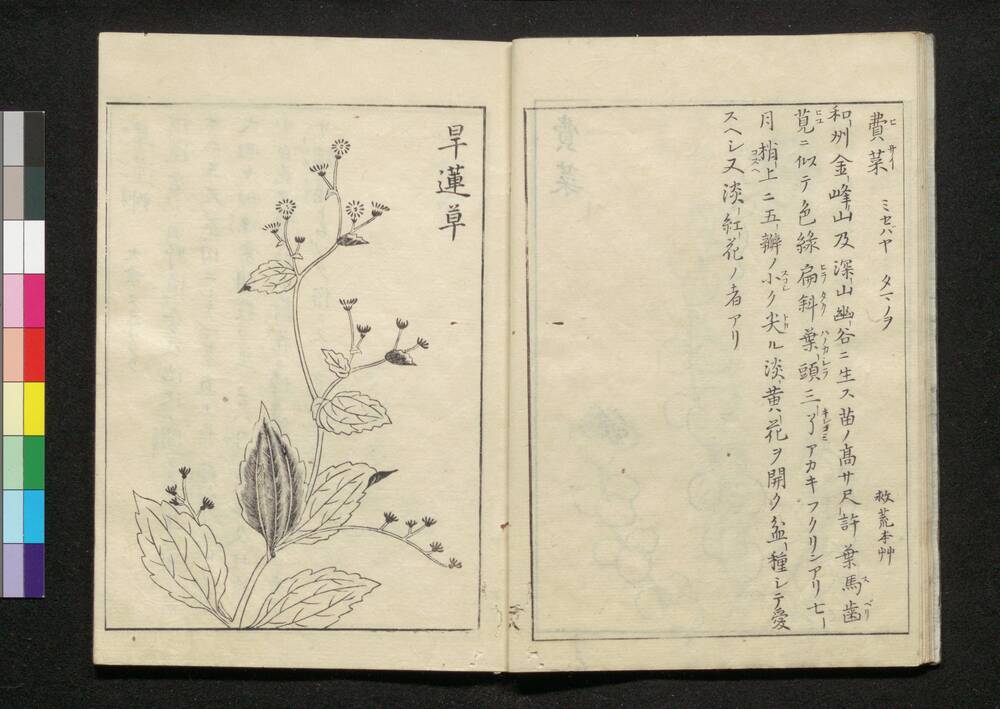 費菜 ミセバヤ タマノヲ 救荒本艸
和州金峰山及深山幽谷ニ生ス苗ノ高サ尺許葉馬歯
莧ニ似テ色緑扁斜葉頭三了アカキフクリンアリ七
月梢上ニ五瓣ノ小ク尖ル淡黄花ヲ開ク盆種シテ愛
スヘシ又淡紅花ノ者アリ
旱蓮草